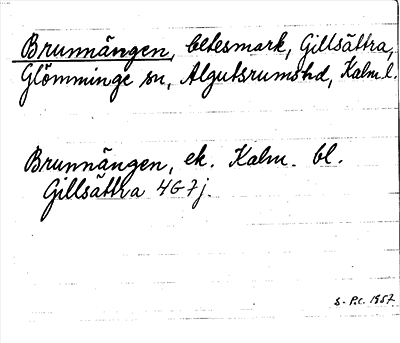 Brunnängen, betesmark, Gillsättra,
Glömminge sn, Algutsrumshd, Kalm.l.
Brunnängen, ek. Kalm. bl.
Gillsättra 4G7j.
S-P.C. 1957